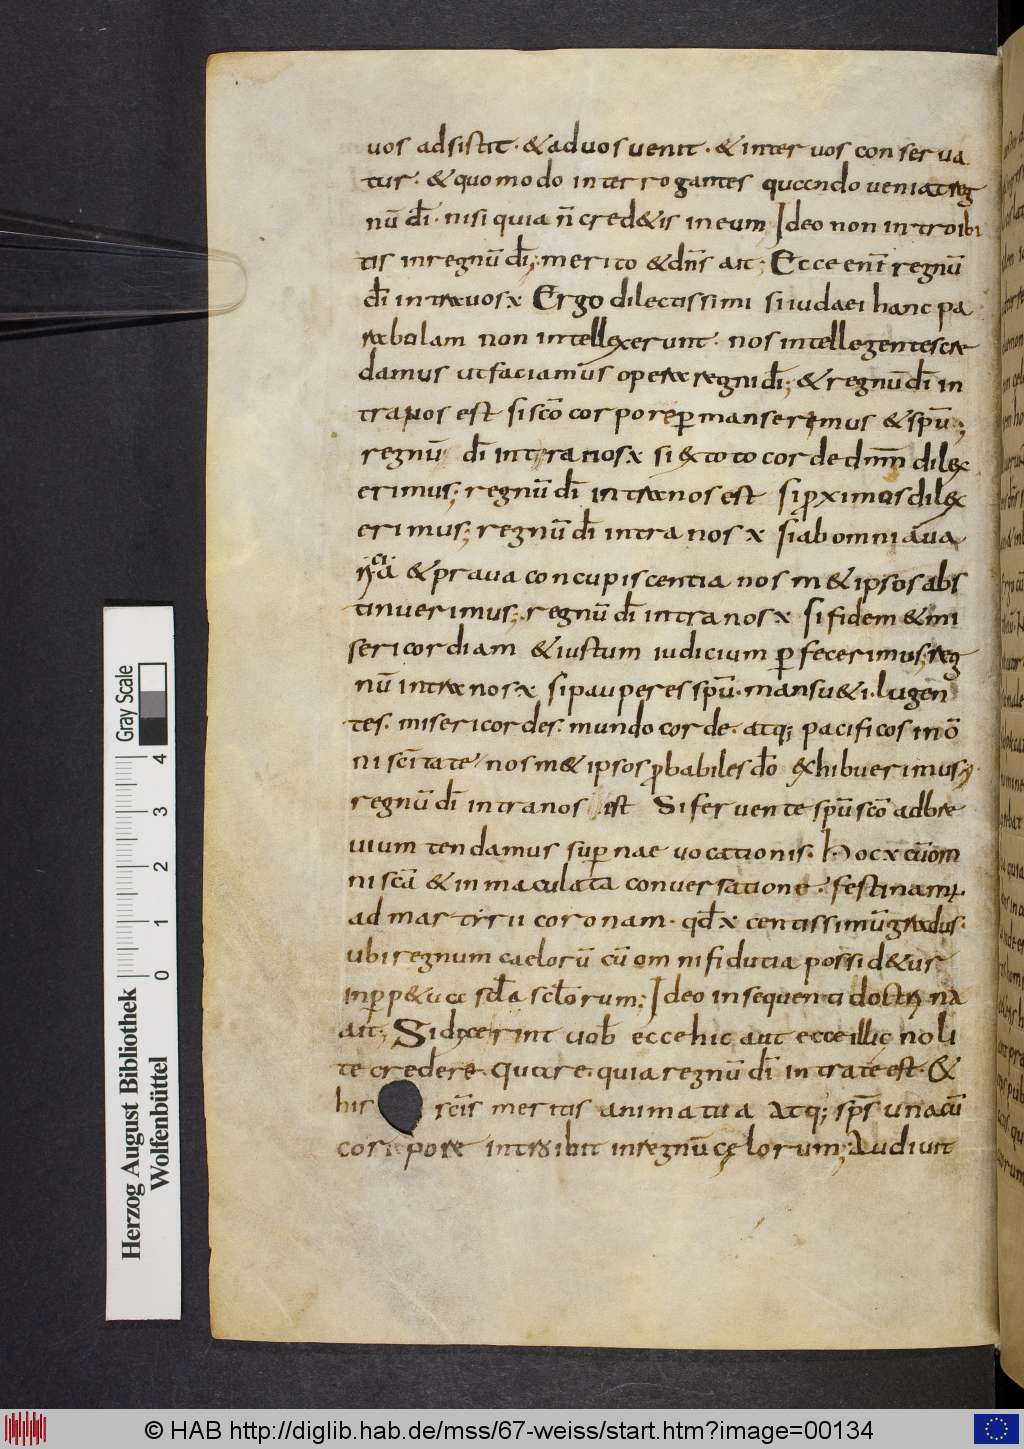 uos adsistit · & ad uos uenit · & inter uos conserua
tur · & quomodo interrogantes quando ueniat reg
nū dī · nisi quia n̄ cred&is in eum Ideo non introibi
tis in regnū dī; merito & dn̄s ait; Ecce enī regnū
dī intra uos x Ergo dilectissimi si iudaei hanc pa
rabolam non intellexerunt · nos intellegentes cre
damus ut faciamus opera regni dī; & regnū dī in
tra nos est si scō corpore permanserimus & spū;
regnū dī intra nos x si ex toto corde dnm̄ dilex
erimus; regnū dī intra nos est si proximos dilex
erimus; regnū dī intra nos x si ab omni aua
& praua concupiscentia nosm&ipsos abs
tinuerimus; regnū dī intra nos x si fidem & mi
sericordiam & iustum iudicium perfecerimus; reg
nū intra nos x si pauperes spū · mansu&i · lugen
tes · misericordes · mundo corde · atq; pacificos in ō
ni scītate nosm&ipsos probabiles dō exhibuerimus
regnū dī intra nos est Si feruente spū scō ad bre
uium tendamus supernae uocationis · Hoc x cū om
ni scā & inmaculata conuersatione · festinam
ad martirii coronam · qd x centissimū gradus ·
ubi regnum caelorū cū omni fiducia possid&ur
in perp&ua scla sclorum; Ideo in sequenti doctrina
ait; Si dixerint uob ecce hic aut ecce illic noli
te credere · Quare · quia regnū dī intra te est · &
his scīs meritis animatua atq; sps una cū
corpore introibit in regnū celorum; Audiuit
Gray Scale
4
3
2
1
0
Herzog August Bibliothek
Wolfenbüttel
© HAB http://diglib.hab.de/mss/67-weiss/start.htm?image=00134